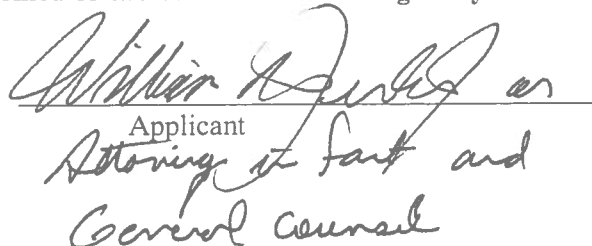 William as
Applicant
Attorney in fact and
General Counsel